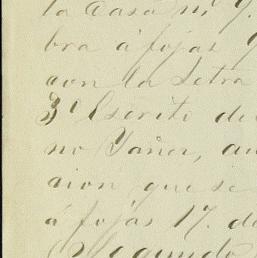 la Casa n.º 9.
bra á fojas 9
con la Letra
3º Escrito de
no Yañez, au
cion que se
á fojas 17. de
Segundo